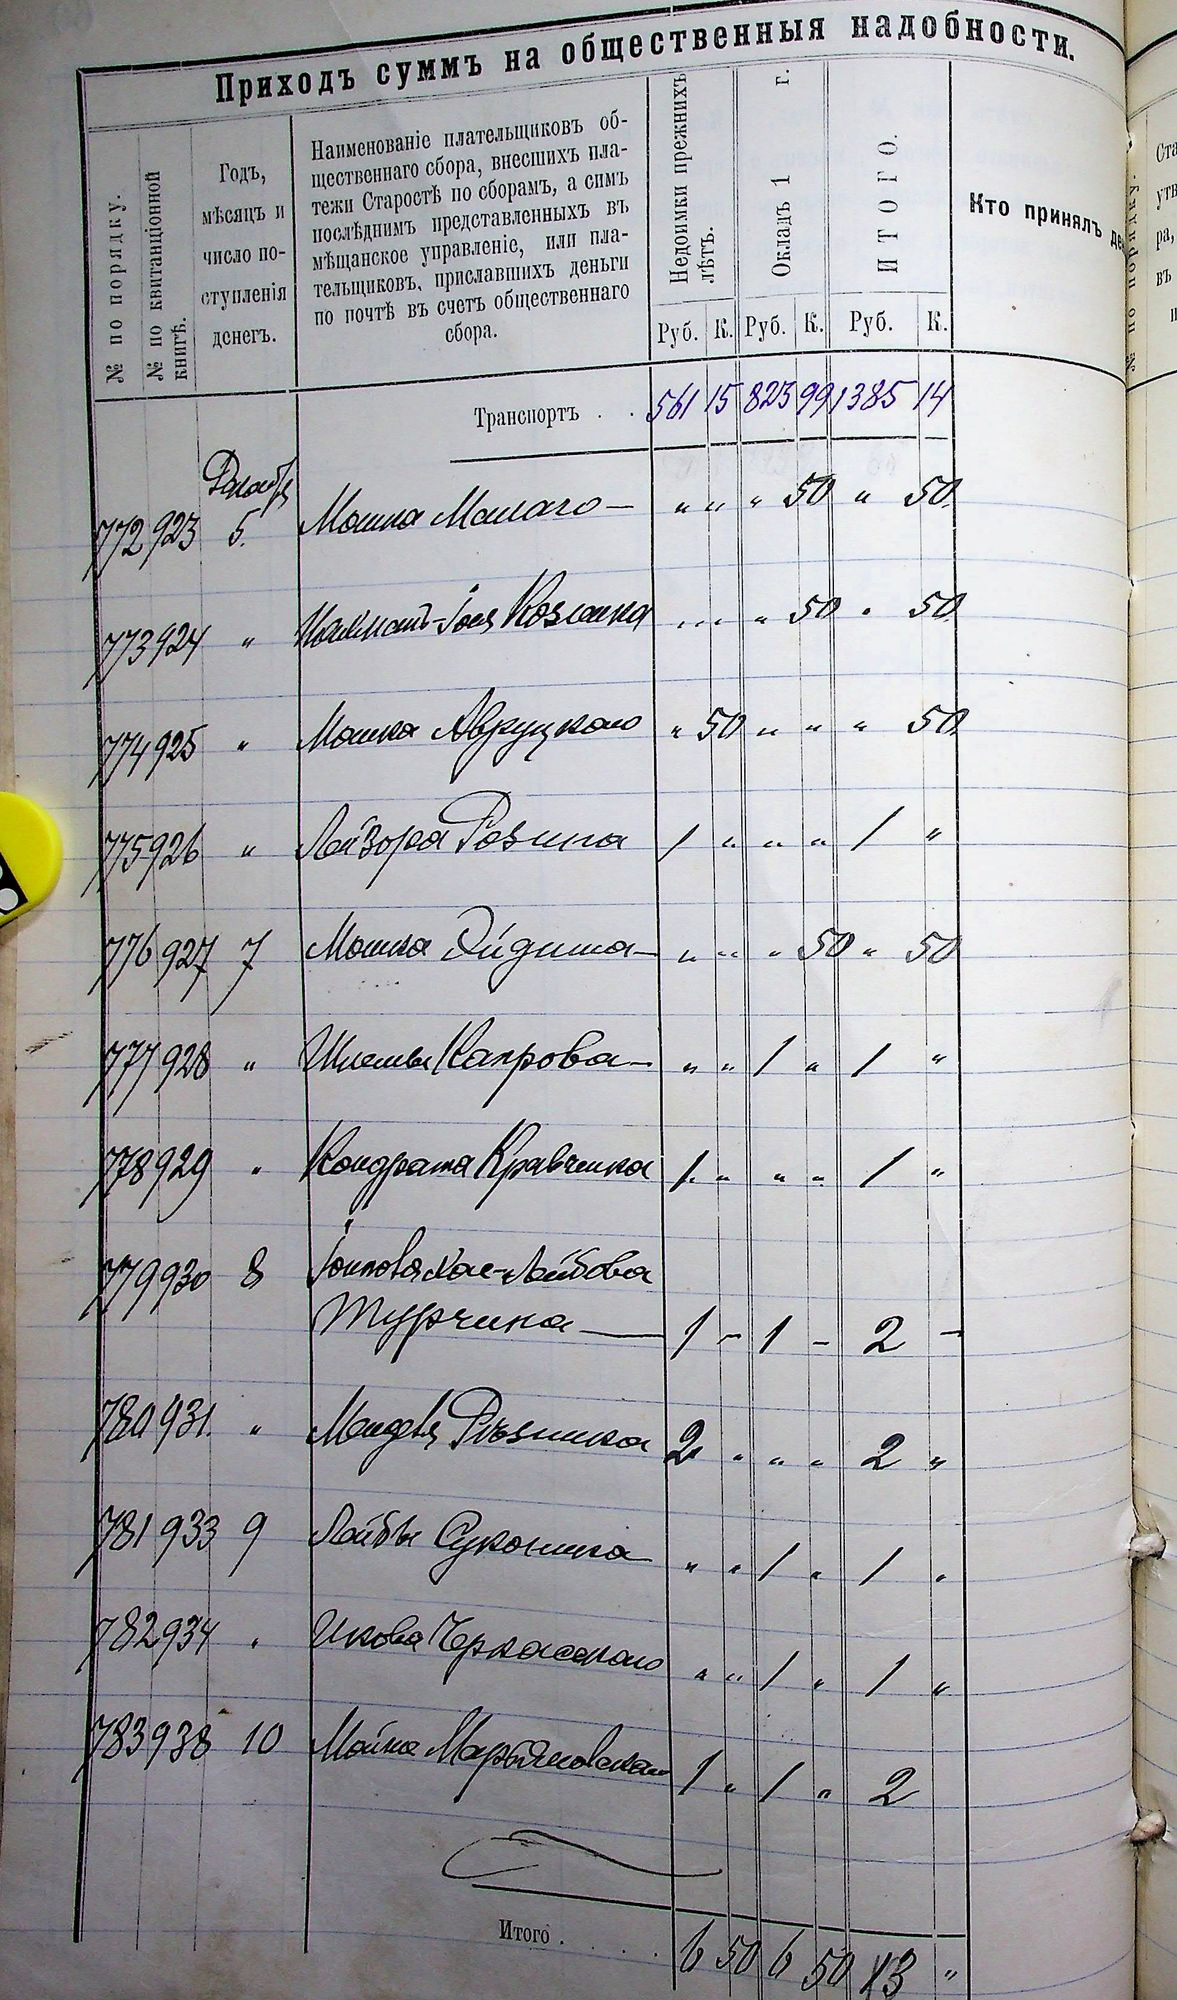 Приходъ суммъ на общественныя надобности.
№ по порядку.
№ по квитанціонной
книгѣ.
Годъ,
мѣсяцъ и
число по-
ступленія
денегъ.
Наименованіе плательщиковъ об-
щественнаго сбора, внесшихъ пла-
тежи Старостѣ по сборамъ, а симъ
послѣднимъ представленныхъ въ
мѣщанское управленіе, или пла-
тельщиковъ, приславшихъ деньги
по почтѣ въ счетъ общественнаго
сбора.
Недоимки прежнихъ
лѣтъ.
Окладъ 1 г.
ИТОГО.
Кто принялъ де
Руб. К. Руб. К. Руб. К.
Транспортъ . . 561 15 823 99 1385 14
Декабр
772 923 5. Мошка — " " " 50 " 50
773 924 " " " " 50 " 50
774 925 " Мошка Авруцкаго " 50 " " " 50
775 926 " Лейзора Розина 1 " " " 1 "
776 927 7 Мошка — " " " 50 " 50
777 928 " Шлемы Капрова — " " 1 " 1 "
778 929 " Кондрата Кравченка 1 " " " 1 "
779 930 8 Лейбова
Турчина — 1 – 1 – 2 –
780 931 " Менделя Рѣзника 2 " " " 2 "
781 933 9 Лейбы Суконика — " " 1 " 1 "
782 934 " Ицкова Черкасскаго " " 1 " 1 "
783 938 10 1 " 1 " 2
Итого . . . . 6 50 6 50 13 "